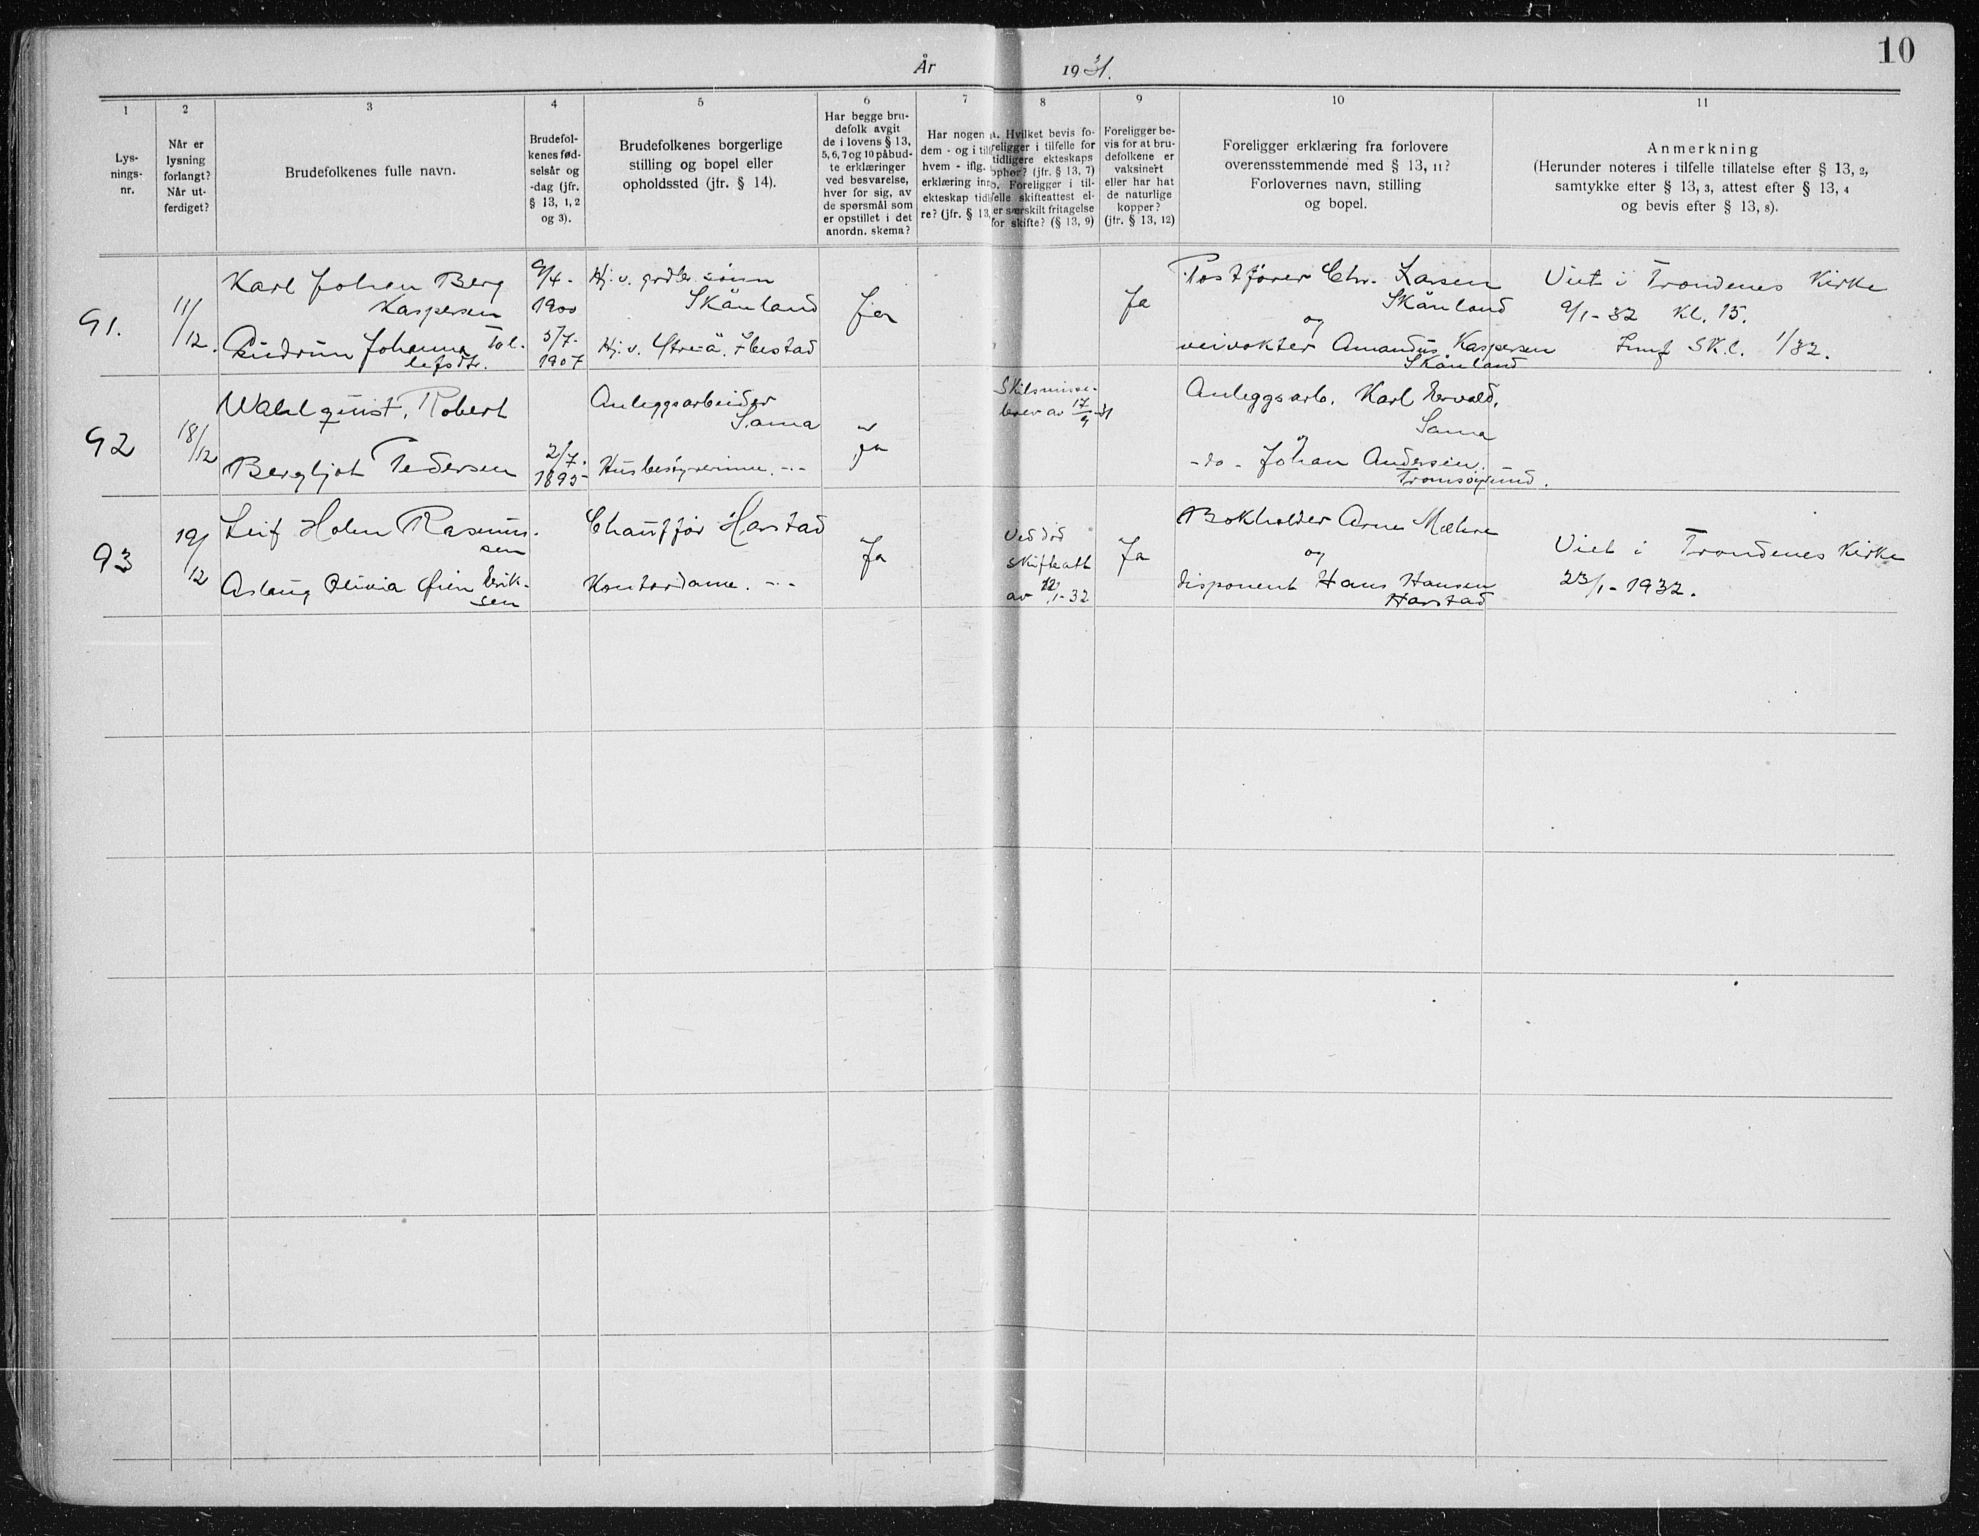 10
År 1931.
1 2 3 4 5 6 7 8 9 10 11
Lys-
nings-
nr.
Når er
lysning
forlangt?
Når ut-
ferdiget?
Brudefolkenes fulle navn.
Brudefol-
kenes fød-
selsår og
-dag (jfr.
§ 13, 1, 2
og 3).
Brudefolkenes borgerlige
stilling og bopel eller
opholdssted (jfr. § 14).
Har begge bru-
defolk avgit
de i lovens § 13,
5, 6, 7 og 10 påbud-
te erklæringer
ved besvarelse,
hver for sig, av
de spørsmål som
er opstillet i det
anordn. skema?
Har nogen a
dem - og i tilf
hvem - iflg.
erklæring inn
ekteskap tidl
re? (jfr. § 13,
. Hvilket bevis fo-
religger i tilfelle for
tidligere ekteskaps
ophør? (jfr. § 13, 7)
b. Foreligger i til-
felle skifteattest el-
er særskilt fritagelse
for skifte? (§ 13, 9)
Foreligger be-
vis for at bru-
defolkene er
vaksinert
eller har hat
de naturlige
kopper?
(jfr. § 13, 12)
Foreligger erklæring fra forlovere
overensstemmende med § 13, 11?
Forlovernes navn, stilling
og bopel.
Anmerkning
(Herunder noteres i tilfelle tillatelse efter § 13, 2,
samtykke efter § 13, 3, attest efter § 13, 4
og bevis efter § 13, 8).
91.
11/12.
Karl Johan Berg
Kaspersen
Gudrun Johanna Tol-
lefsdtr.
9/4-
1900
5/7-
1907
Hj. v. grdbr. sönn
Skånland
Hj. v. Ibestad
Ja
Ja
Postfører Chr. Larsen
Skånland
og
veivokter Amandus Kaspersen
Skånland
Viet i Trondenes Kirke
9/1-32 Kl. 15.
SK.C. 1/32.
92
18/12
Wahlquist, Robert
Bergljot Pedersen
2/7-
1895-
Anleggsarbeider
Sama
Husbestyrerinne. -"-
Ja
Skilsmisse-
brev av 17/9-31
Anleggsarb. Karl
Sama
og
-do- Johan Andersen.
Tromsøysund.
93
19/12
Leif Holm Rasmus-
sen
Aslaug Olivia Øien Erik-
sen
Chauffør Harstad
Kontordame. -"-
Ja
Ved död
skifteatt
av 12/1-32
Ja
Bokholder Arne Mæhre
og
disponent Hans Hansen
Harstad
Viet i Trondenes Kirke
23/1-1932.